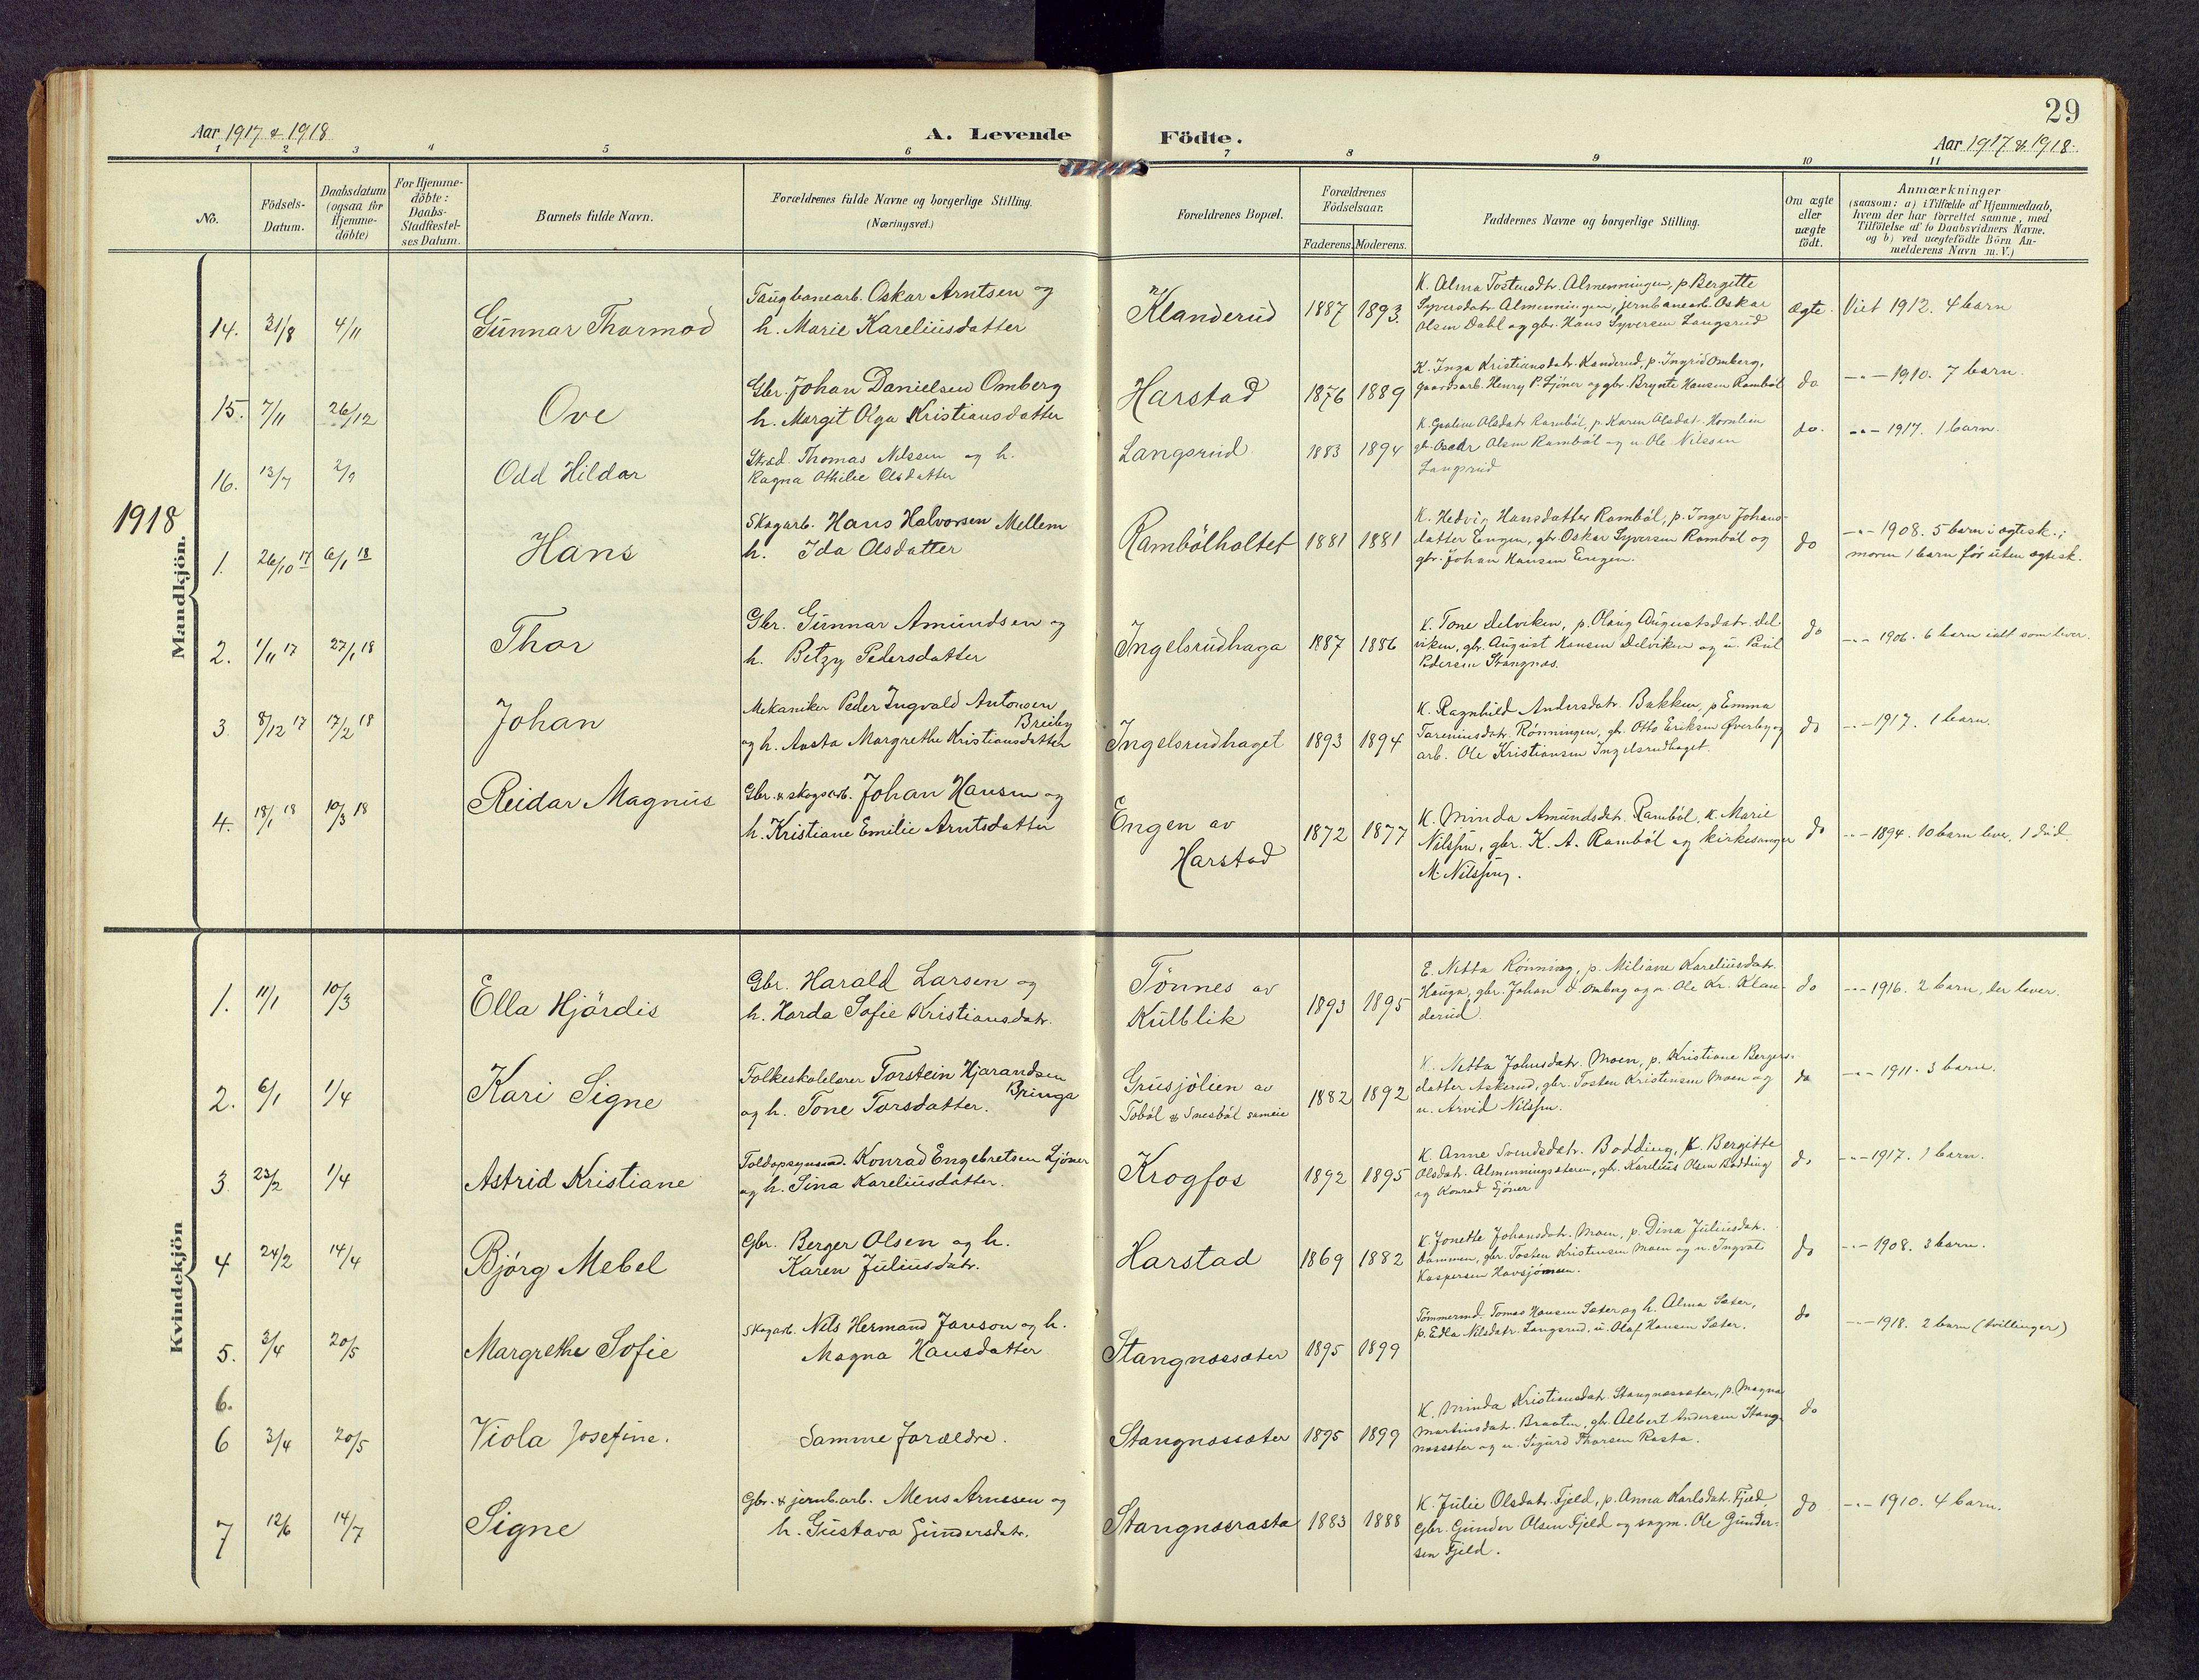 29
Aar 1917 & 1918
A. Levende Födte.
Aar 1917 & 1918.
1 2 3 4 5 6 7 8 9 10 11
No.
Födsels-Datum.
Daabsdatum (ogsaa for Hjemme-döbte)
For Hjemme-döbte: Daabs-Stadfæstel-ses Datum.
Barnets fulde Navn.
Forældrenes fulde Navne og borgerlige Stilling.
(Næringsvei.)
Forældrenes Bopæl.
Forældrenes Födselsaar.
Faderens. Moderens.
Faddernes Navne og borgerlige Stilling.
Om ægte eller uægte födt.
Anmærkninger
(saasom: a) i Tilfælde af Hjemmedaab,
hvem der har forrettet samme, med
Tilföielse af to Daabsvidners Navne.
og b) ved uægtefödte Börn An-
melderens Navn m. V.)
Mandkjön.
14. 31/8 4/11 Gunnar Thormod
Taugbanearb. Oskar Arntsen og
h. Marie Kareliusdatter
Klanderud 1887 1893.
K. Alma Tostensdtr. Almenningen, p Bergitte
Syversdatr Almenningen, jernbanearb. Oskar
Olsen Dahl og gbr. Hans Syversen Langsrud
ægte. Viet 1912. 4 barn
15. 7/11 26/12 Ove
Gbr. Johan Danielsen Omberg
h. Margit Olga Kristiansdatter
Harstad 1876 1889
K. Inga Kristiansdatr. Kanderud, p. Ingrid Omberg,
gaardsarb. Henry P. Sjöner og gbr. Brynte Hansen Ramböl
do -"- 1910. 7 barn.
16. 13/7 2/9 Odd Hildar
Thomas Nilssen og h.
Ragna Othilie Olsdatter
Langsrud 1883 1894
Olsdatr Ramböl, p. Karen Olsdatr.
Olsen Ramböl og u. Ole Nilssen
Langsrud
do. -"- 1917. 1 barn.
1918
1. 26/10 17 6/1 18 Hans
Skogarb. Hans Halvorsen Mellem
h. Ida Olsdatter
Rambölholtet 1881 1881
K. Hedvig Hansdatter Ramböl, p. Inger Johans-
datter Engen, gbr Oskar Syversen Ramböl og
gbr. Johan Hansen Engen.
do -"- 1908. 5 barn i ægtesk.;
moren 1 barn før uten ægtesk.
2. 1/11 17 27/1 18 Thor
Gbr. Gunnar Amundsen og
h. Betzy Pedersdatter
Ingelsrudhaga 1887 1886
K. Tone Delviken, p. Olaug Augustsdatr. Del-
viken, gbr. August Hansen Delviken og u. Paul
Pedersen Stangnæs.
do -"- 1906. 6 barn ialt som lever.
3. 8/12 17 17/2 18 Johan
Mekaniker Peder Ingvald Antonsen
Breiby
og h. Aasta Margrethe Kristiansdatter
Ingelsrudhaget 1893 1894
K. Ragnhild Andersdatr. Bakken, p Emma
Tareniusdatr. Rønningen, gbr. Otto Eriksen Øverby og
arb. Ole Kristiansen Ingelsrudhaget.
do -"- 1917. 1 barn.
4. 18/1 18 10/3 18 Reidar Magnus
Gbr. & skogsarb. Johan Hansen og
h. Kristiane Emilie Arntsdatter
Engen av
Harstad
1872 1877
K. Minda Amundsdtr. Ramböl, K. Marie
Nilssen, gbr. K. A. Ramböl og kirkesanger
M. Nilssen.
do -"- 1894. 10 barn lever, 1 död.
Kvindekjön
1. 11/1 10/3 Ella Hjördis
Gbr. Harald Larsen og
h. Harda Sofie Kristiansdatr.
Tönnes av
Kulblik
1893 1895
E. Netta Rönning, p. Miliane Kareliusdatr.
Hauga, gbr. Johan D. Omberg og u. Ole Kr. Klan-
derud.
do -"- 1916. 2 barn, der lever.
2. 6/1 1/4 Kari Signe
Folkeskolelærer Torstein Hjarandsen
Bringa
og h. Tone Torsdatter.
Grusjölien av
Toböl & Snesböl sameie
1882 1892
K. Netta Johnsdatr. Moen, p. Kristiane Bergers-
datter Askerud, gbr. Tosten Kristensen Moen og
u. Arvid Nilssen.
do -"- 1911. 3 barn.
3. 23/2 1/4 Astrid Kristiane
Toldopsynsmd. Konrad Engebretsen Sjöner
og h. Sina Kareliusdatter.
Krogfos 1892 1895
K. Anne Svendsdatr. Bodding, K. Bergitte
Olsdatr. Almenningsæteren, gbr. Karelius Olsen Bodding
og Konrad Sjöner
do -"- 1917. 1 barn.
4 24/2 14/4 Bjørg Mebel
Gbr. Berger Olsen og h.
Karen Juliusdatr.
Harstad 1869 1882
K. Jonette Johansdatr. Moen, p. Dina Juliusdatr.
Dammen, gbr. Tosten Kristensen Moen og u. Ingvald
Kaspersen Havsjömoen.
do -"- 1908. 3 barn.
5. 3/4 20/5 Margrethe Sofie
Skogarb. Nils Hermand Janson og h.
Magna Hansdatter
Stangnæssæter 1895 1899
Tömmermd. Tomas Hansen Sæter og h. Alma Sæter,
p. Edla Nilsdatr. Langsrud, u. Olaf Hansen Sæter.
do -"- 1918. 2 barn (tvillinger)
6.
6 3/4 20/5 Viola Josefine.
Samme forældre.
Stangnæssæter 1895 1899
K. Minda Kristiansdatr. Stangnæssæter, p. Magna
Martinsdatr. Braaten, gbr. Albert Andersen Stang-
næssæter og u. Sigurd Thorsen Rasta.
do
7 12/6 14/7 Signe
Gbr. & jernb.arb. Mens Arnesen og
h. Gustava Gundersdatr.
Stangnæsrasta 1883 1888
K. Julie Olsdatr. Fjeld, p. Anna Karlsdatr. Fjeld,
Gbr. Gunder Olsen Fjeld og sagm. Ole Gunder-
sen Fjeld.
do -"- 1910. 4 barn.